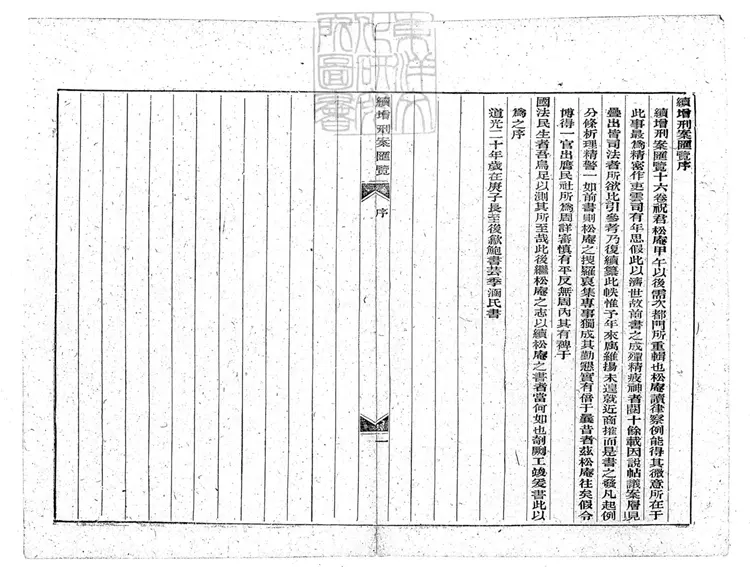 續增刑案匯覽序
續增刑案匯覽十六卷祝君松庵甲午以後需次都門所重輯也松庵讀律察例能得其微意所在于
此事最爲精密作吏雲司有年思假此以濟世故前書之成殫精疲神者閱十餘載因說帖議案層見
疊出皆司法者所欲比引參考乃復續纂此帙惟予年來寓維揚未遑就近商搉而是書之發凡起例
分條析理精警一如前書則松庵之搜羅裒集專事獨成其勤懇實有倍于曩昔者茲松庵往矣假令
博得一官出膺民社所爲周詳審慎有平反無周內其有裨于
國法民生者吾烏足以測其所至哉此後繼松庵之志以續松庵之書者當何如也剞劂工竣爰書此以
爲之序
道光二十年歲在庚子長至後歙鮑書芸季涵氏書
續增刑案匯覽
序
一
東洋文化研究所圖書